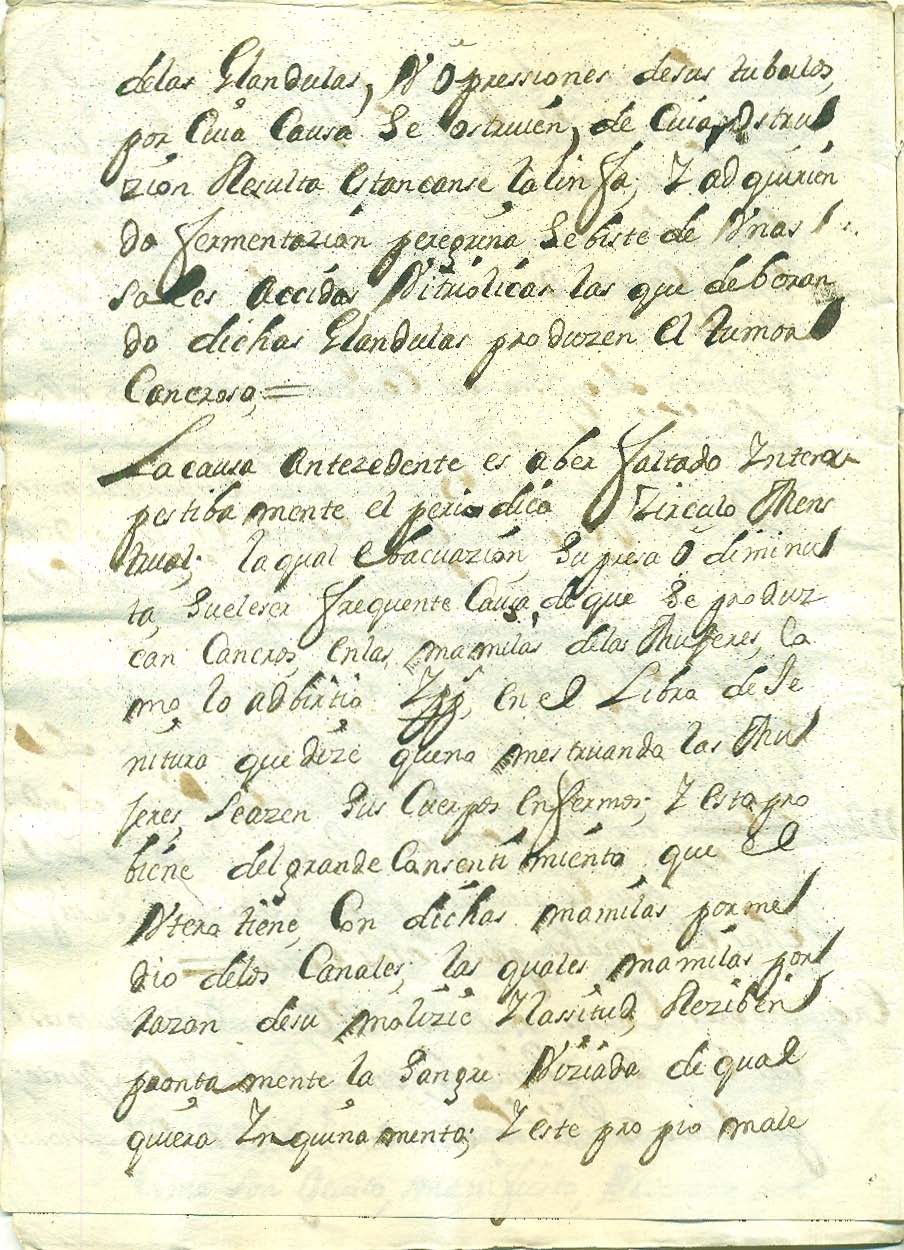 delas Glandulas, V Õpressiones desus tubulos,
por Cuia Causa Se ostruien, de Cuia, Ostru
zion Resulta estancanse lalinfa; Y adquirien
do fermentazion peregrina Sebiste de Vnas
Sales Accidas Vitriolicas las que deboran
do dichas Glandulas produzen el tumor
Cancroso, =
La causa Antezedente es aber faltado Intem
pestibamente el periodico Zirculo Mens
trual; laqual ebacuazion Supresa ó diminu
ta, Sueleser frequente Causa de que Se produz
can Cancros, enlas mamilas delas Mugeres, Co
mo lo adbirtio en el Libro de Je
nitura que dize queno mestruando las Mu
jeres, Seazen Sus Cuerpos enfermos; Y esto pro
biene delgrande Consentimiento que el
Vtero tiene, Con dichas mamilas porme
dio delos Canales; las quales mamilas por
Razon desu molizie Ylassitud, Reziben
prontamente la Sangre Viziada de qual
quiera Ynquinamento; Y este propio male